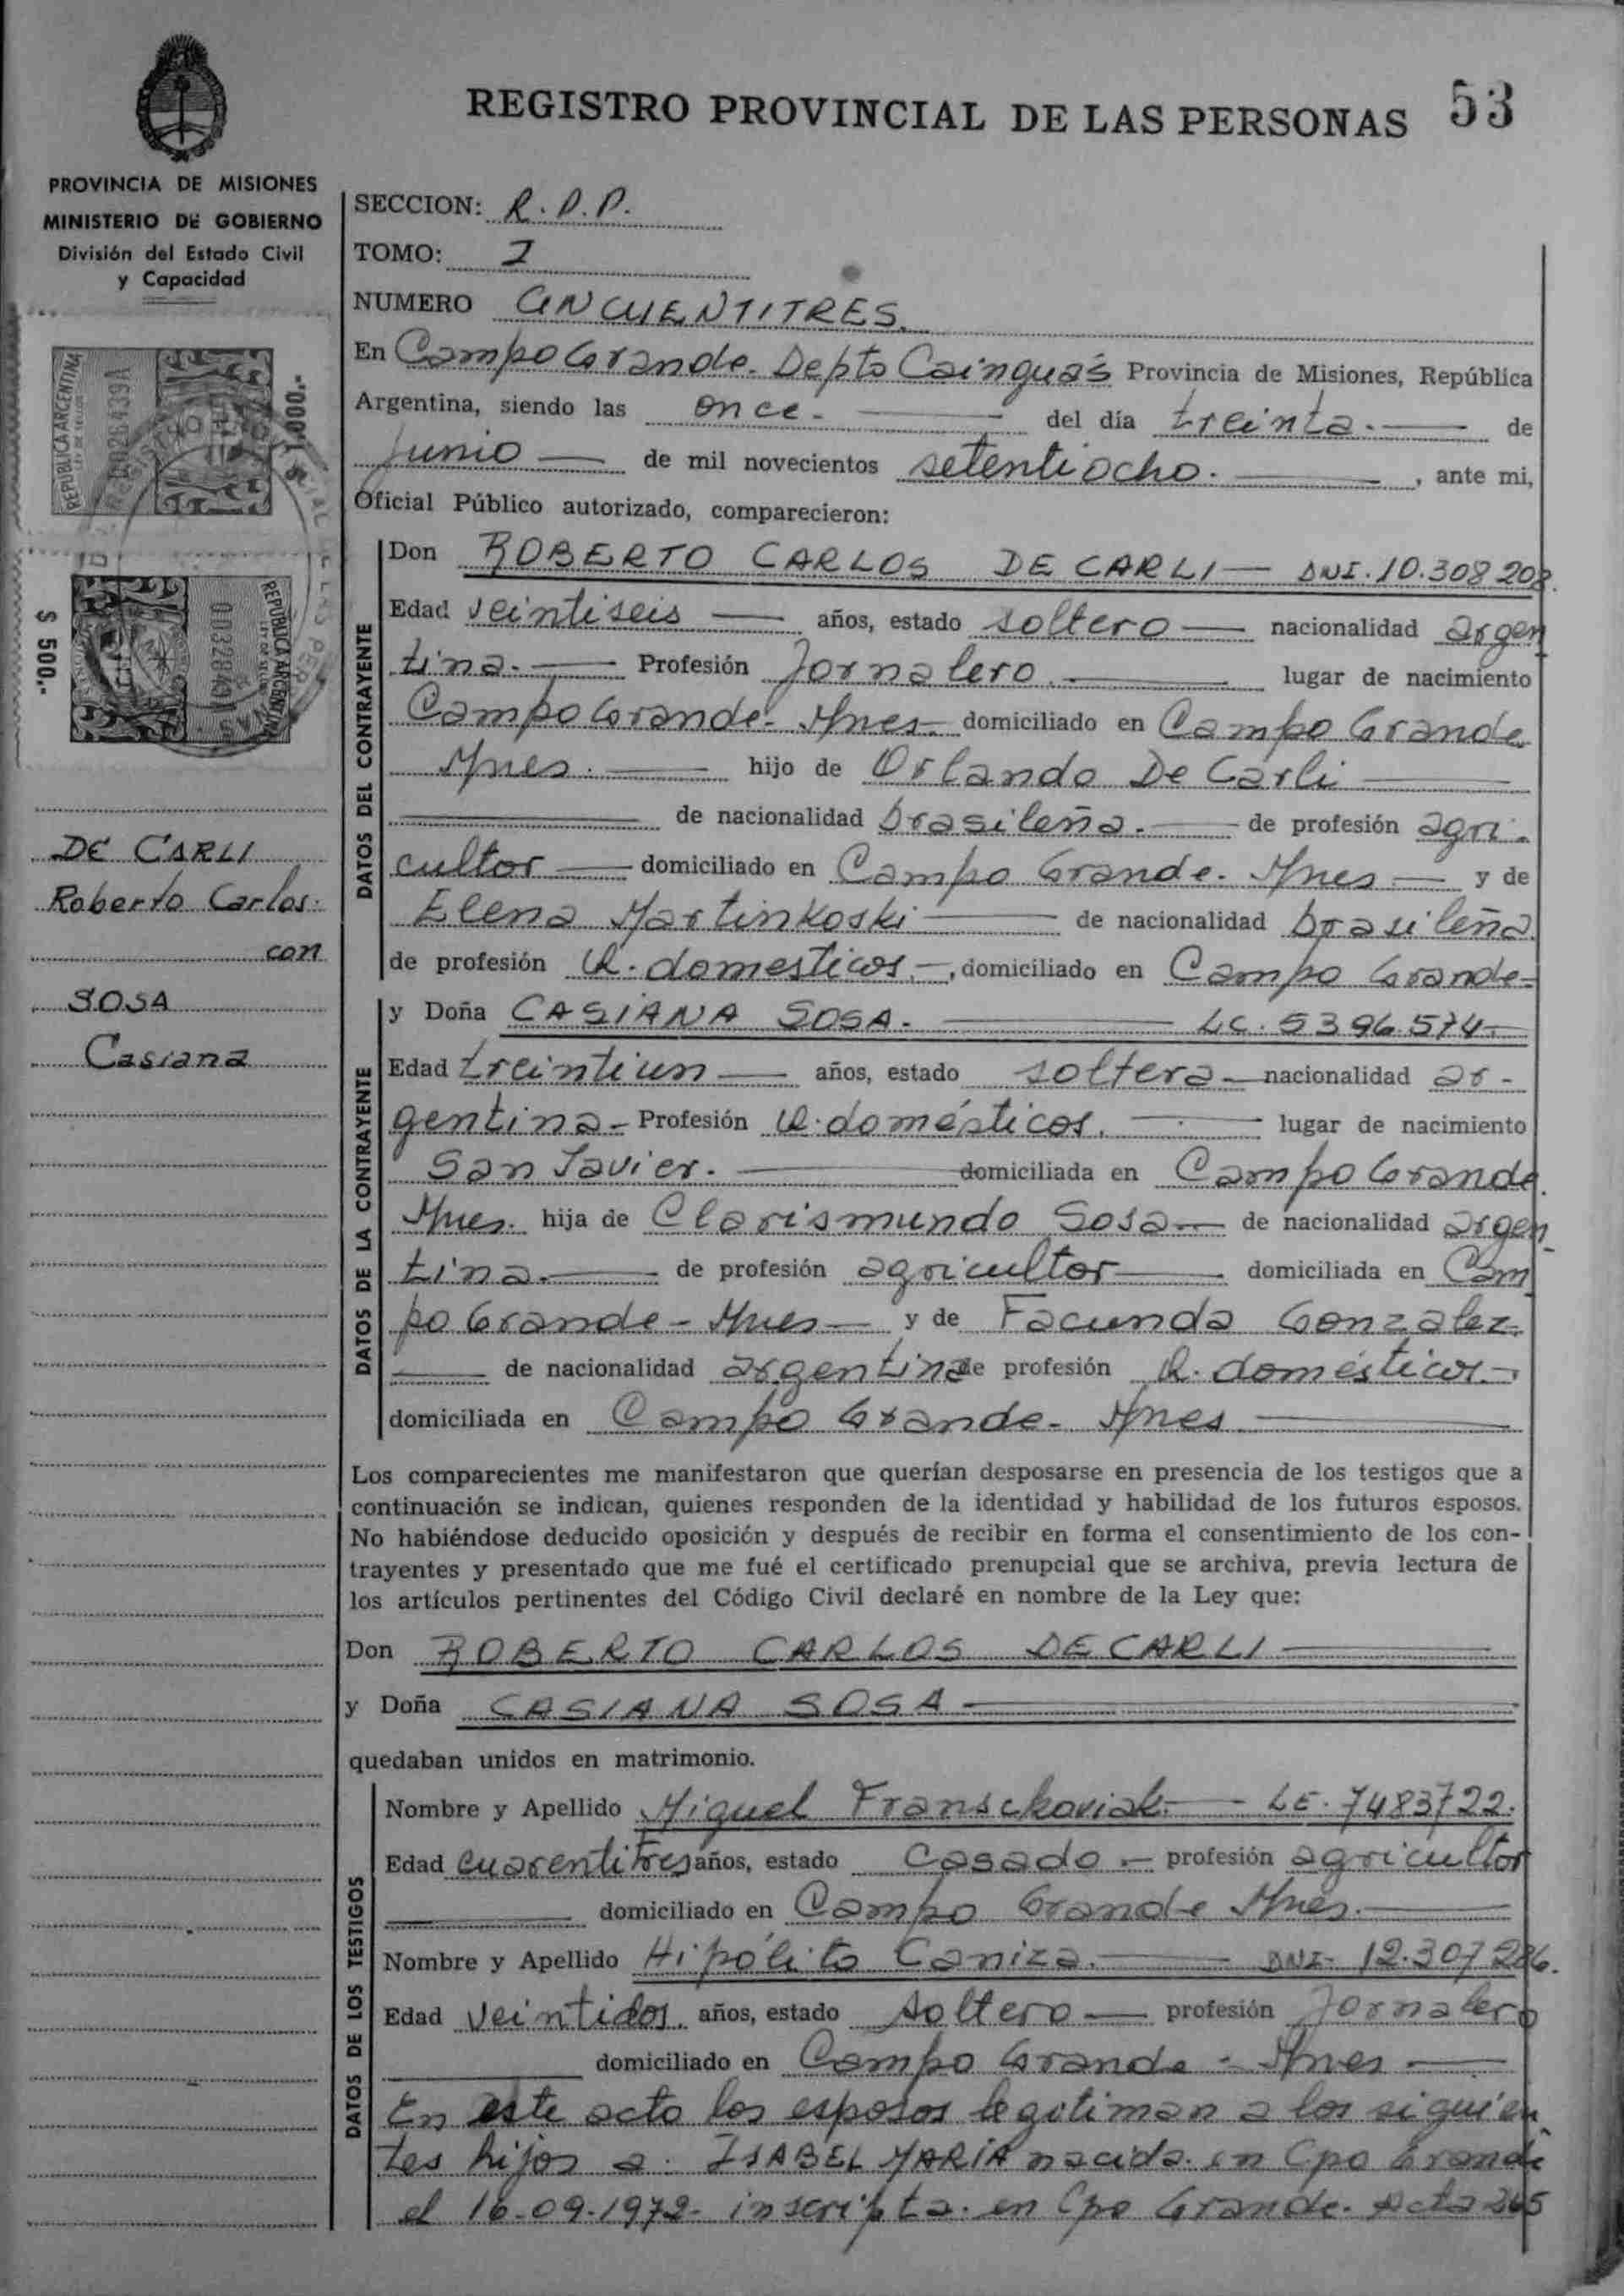 REGISTRO PROVINCIAL DE LAS PERSONAS 53
PROVINCIA DE MISIONES
MINISTERIO DE GOBIERNO
División del Estado Civil
y Capacidad
REPUBLICA ARGENTINA
$ 1.000.-
$ 500.-
REPUBLICA ARGENTINA
DE CARLI
Roberto Carlos.
con
SOSA
Casiana
SECCION: R.P.P.
TOMO: I
NUMERO CINCUENTITRES.
En Campo Grande. Depto Cainguás Provincia de Misiones, República
Argentina, siendo las once.- del día treinta.- de
Junio — de mil novecientos setentiocho. —, ante mi,
Oficial Público autorizado, comparecieron:
DATOS DEL CONTRAYENTE
Don ROBERTO CARLOS DE CARLI — DNI. 10.308.208.
Edad veintiseis — años, estado soltero — nacionalidad argen
tina.— Profesión Jornalero. — lugar de nacimiento
Campo Grande- Mnes- domiciliado en Campo Grande
Mnes. — hijo de Orlando De Carli —
— de nacionalidad brasileña.— de profesión agri-
cultor — domiciliado en Campo Grande. Mnes — y de
Elena Martinkoski — de nacionalidad brasileña
de profesión Q. domesticos.-, domiciliado en Campo Grande-
DATOS DE LA CONTRAYENTE
y Doña CASIANA SOSA. — LC. 5396.574-
Edad treintiun — años, estado soltera — nacionalidad ar-
gentina- Profesión Q. domésticos. — lugar de nacimiento
San Javier. — domiciliada en Campo Grande.
Mnes. hija de Clarismundo Sosa — de nacionalidad argen
tina.— de profesión agricultor — domiciliada en Cam
po Grande - Mnes — y de Facunda Gonzalez.
— de nacionalidad argentina de profesión Q. domésticos.-
domiciliada en Campo Grande- Mnes —
Los comparecientes me manifestaron que querían desposarse en presencia de los testigos que a
continuación se indican, quienes responden de la identidad y habilidad de los futuros esposos.
No habiéndose deducido oposición y después de recibir en forma el consentimiento de los con-
trayentes y presentado que me fué el certificado prenupcial que se archiva, previa lectura de
los artículos pertinentes del Código Civil declaré en nombre de la Ley que:
Don ROBERTO CARLOS DE CARLI —
y Doña CASIANA SOSA —
quedaban unidos en matrimonio.
DATOS DE LOS TESTIGOS
Nombre y Apellido Miguel Franschoviak — LE. 7483722.
Edad cuarentitres años, estado casado.- profesión agricultor
— domiciliado en Campo Grande Mnes. —
Nombre y Apellido Hipólito Caniza. — DNI- 12.307.286.
Edad veintidos. años, estado soltero — profesión Jornalero
domiciliado en Campo Grande - Mnes —
En este acto los esposos legitiman a los siguien
tes hijos a. ISABEL MARIA nacida en Cpo Grande
el 16-09-1972- inscripta en Cpo Grande. Acta 265